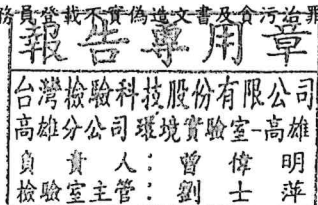 務員登載不實偽造文書及貪污治罪
報告專用章
台灣檢驗科技股份有限公司
高雄分公司環境實驗室-高雄
負責人：曾偉明
檢驗室主管：劉士萍